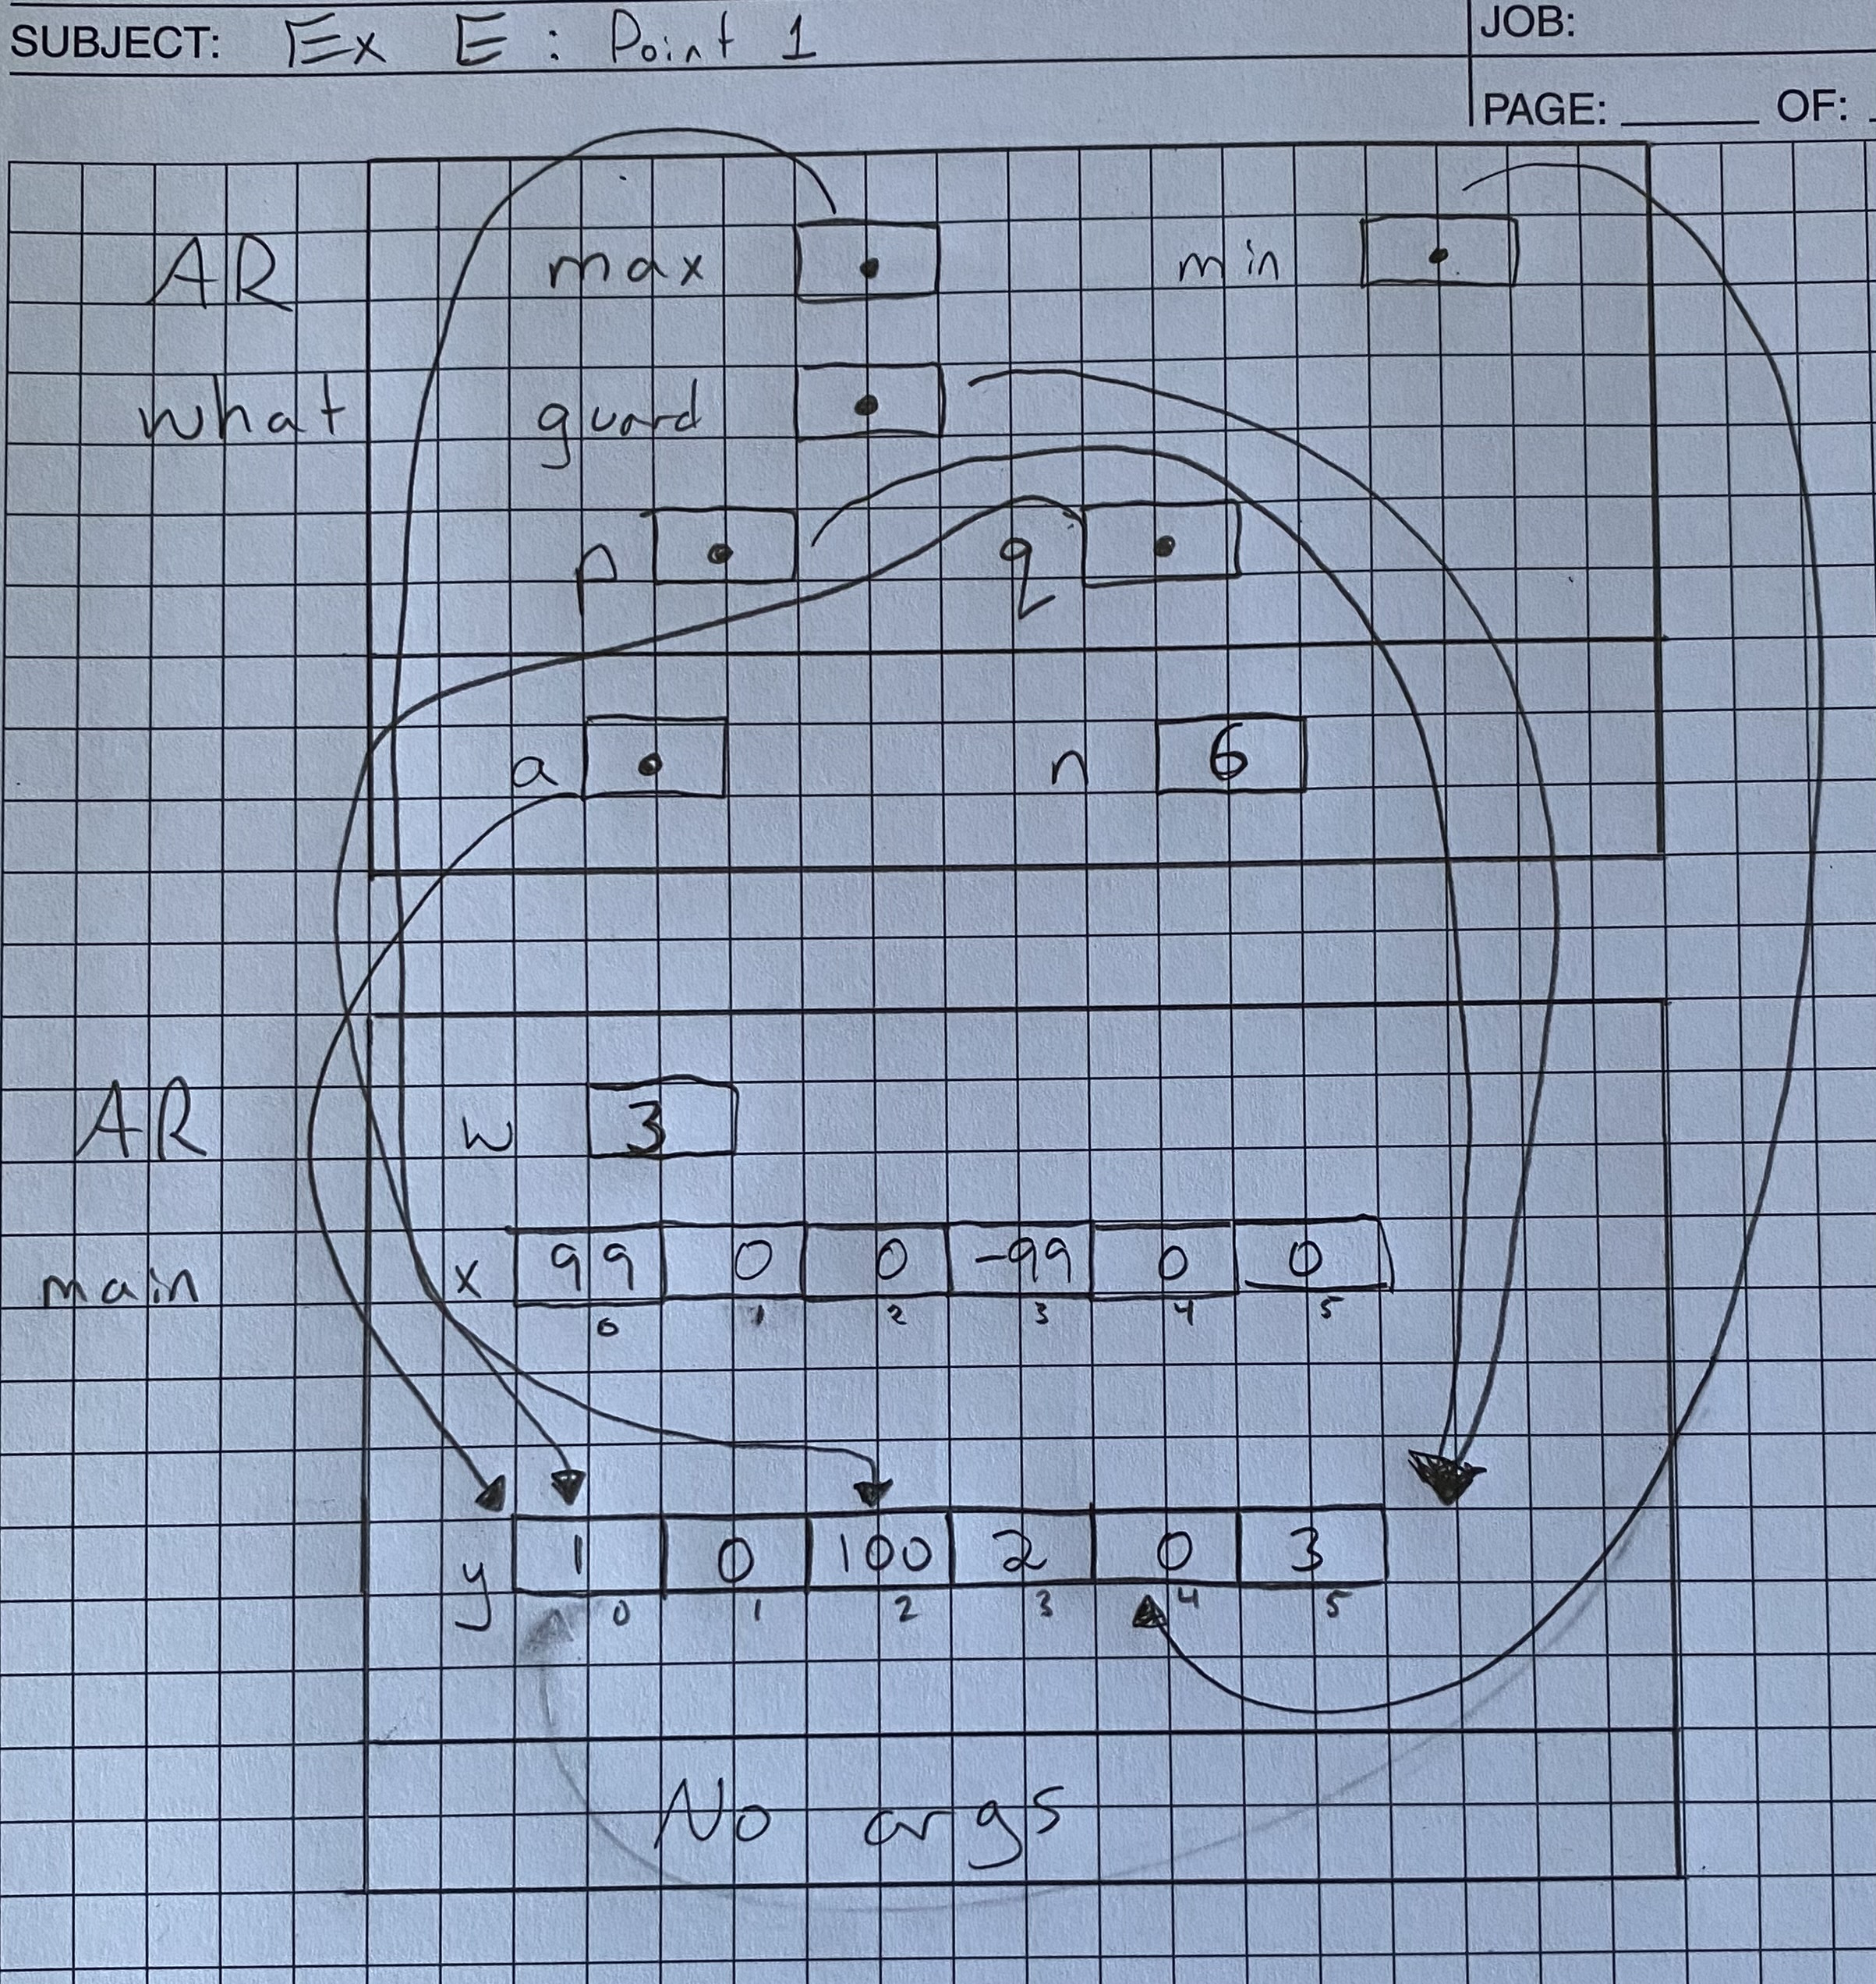 SUBJECT: Ex E : Point 1
JOB:
PAGE: ______ OF:
AR max min
what guard
p q
a n 6
AR w 3
main x 99 0 0 -99 0 0
0 1 2 3 4 5
y 1 0 100 2 0 3
0 1 2 3 4 5
No args